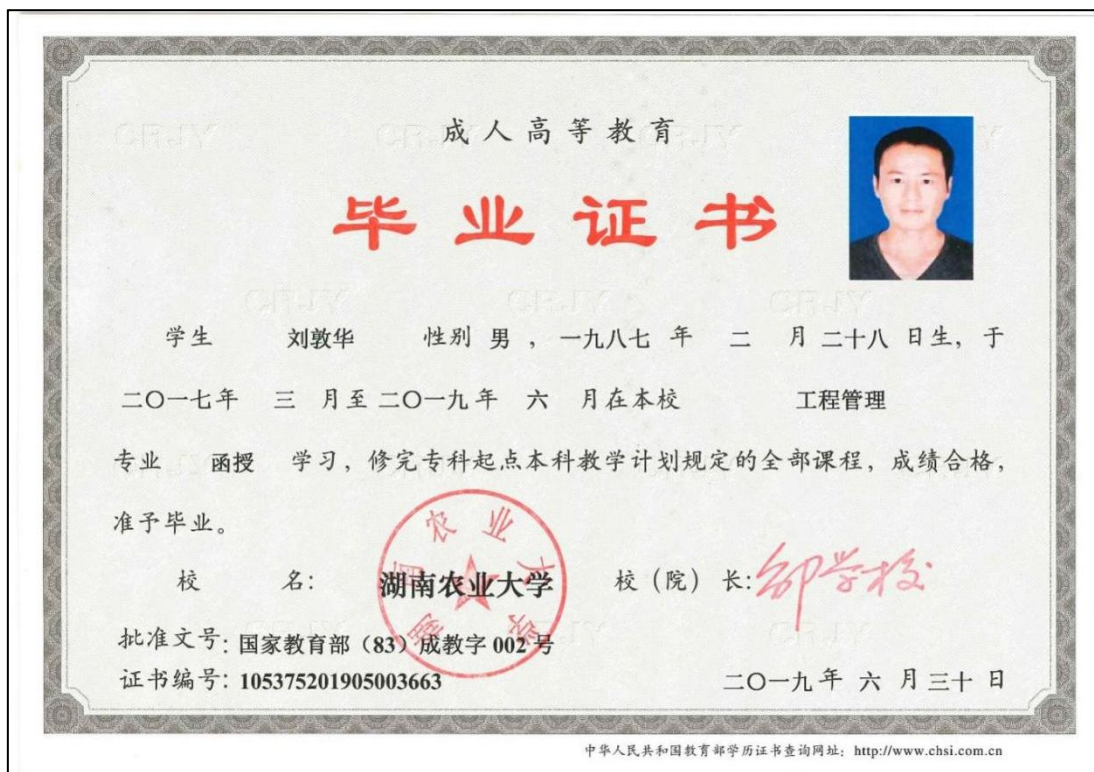 成人高等教育
毕业证书
学生 刘敦华 性别 男 ， 一九八七 年 二 月 二十八 日生， 于
二〇一七年 三 月至 二〇一九年 六 月在本校 工程管理
专业 函授 学习， 修完专科起点本科教学计划规定的全部课程， 成绩合格，
准予毕业。
校 名： 湖南农业大学 校（院）长： 邹学校
湖南农业大学
批准文号： 国家教育部（83）成教字 002 号
证书编号： 105375201905003663 二〇一九年 六 月 三十 日
中华人民共和国教育部学历证书查询网址： http://www.chsi.com.cn